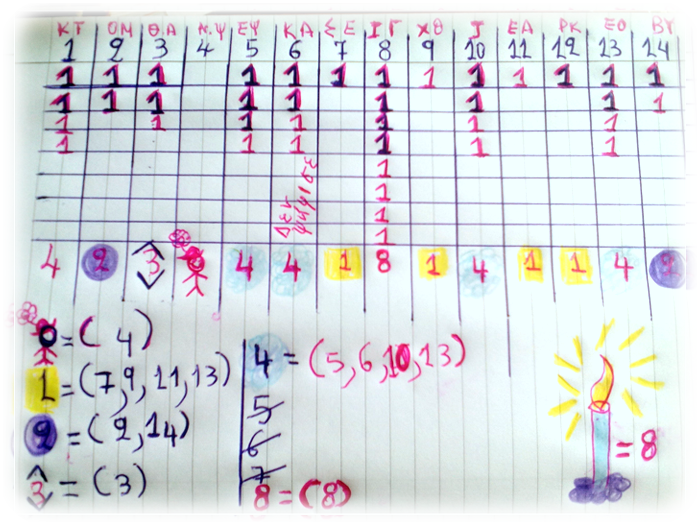 ΚΤ ΟΜ Θ.Α Ν.Ψ ΕΨ ΚΑ ΣΕ ΙΓ ΧΘ J ΕΑ ΡΚ ΕΘ ΒΥ
1 2 3 4 5 6 7 8 9 10 11 12 13 14
1 1 1 1 1 1 1 1 1 1 1 1 1
1 1 1 1 1 1 1 1 1
1 1 1 1 1 1 1
1 1 1 1 1 1
1
1
1
1
Δεν
ψήφισε
4 2 3 4 4 1 8 1 4 1 1 4 2
0=( 4)
1=(7,9,11,13)
2=(2,14)
3=(3)
4=(5,6,10,13)
5
6
7
8=(8)
=8